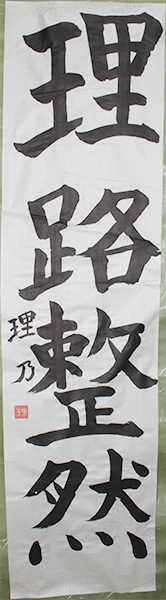 理路整然
理乃
理